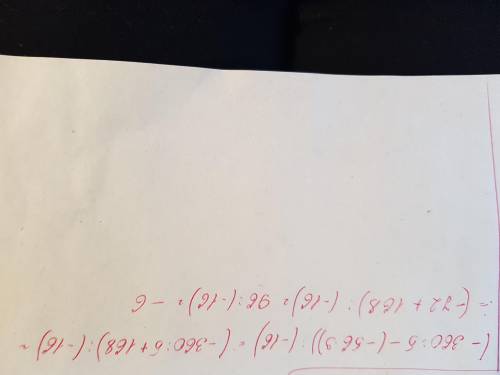 (-360:5-(-56·3)):(-16)=(-360:5+168):(-16)=
=(-72+168):(-16)=96:(-16)=-6